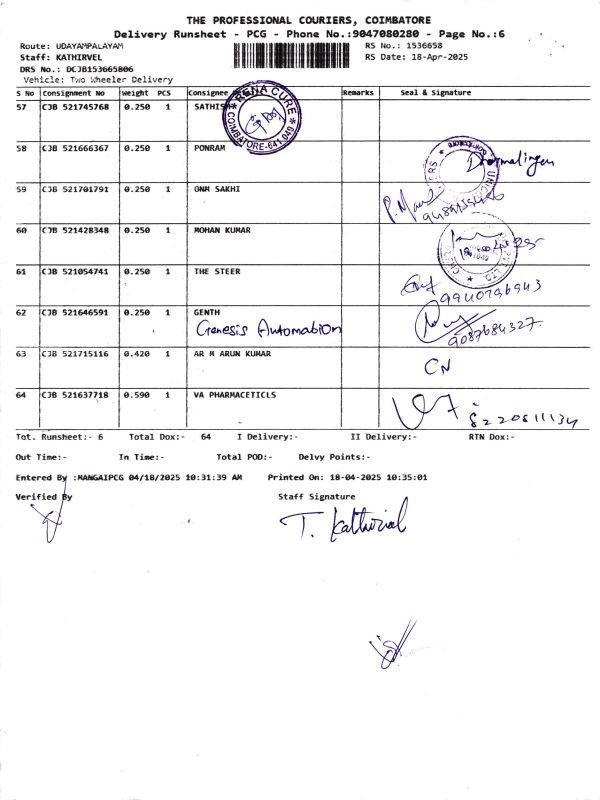 THE PROFESSIONAL COURIERS, COIMBATORE
Delivery Runsheet - PCG - Phone No.:9047080280 - Page No.:6
Route: UDAYAMPALAYAM RS No.: 1536658
Staff: KATHIRVEL RS Date: 18-Apr-2025
DRS No.: DCJB153665806
Vehicle: Two Wheeler Delivery
S No Consignment No Weight PCS Consignee Remarks Seal & Signature
57 CJB 521745768 0.250 1 SATHISH
RENA CURE
COIMBATORE-641 049
58 CJB 521666367 0.250 1 PONRAM
Dharmalingam
59 CJB 521701791 0.250 1 ONM SAKHI
60 CJB 521428348 0.250 1 MOHAN KUMAR
61 CJB 521054741 0.250 1 THE STEER
9940796943
62 CJB 521646591 0.250 1 GENTH
Genesis Automation
9087684327.
63 CJB 521715116 0.420 1 AR M ARUN KUMAR
CN
64 CJB 521637718 0.590 1 VA PHARMACETICLS
8220811134
Tot. Runsheet:- 6 Total Dox:- 64 I Delivery:- II Delivery:- RTN Dox:-
Out Time:- In Time:- Total POD:- Delvy Points:-
Entered By :MANGAIPCG 04/18/2025 10:31:39 AM Printed On: 18-04-2025 10:35:01
Verified By Staff Signature
T. Kathirvel